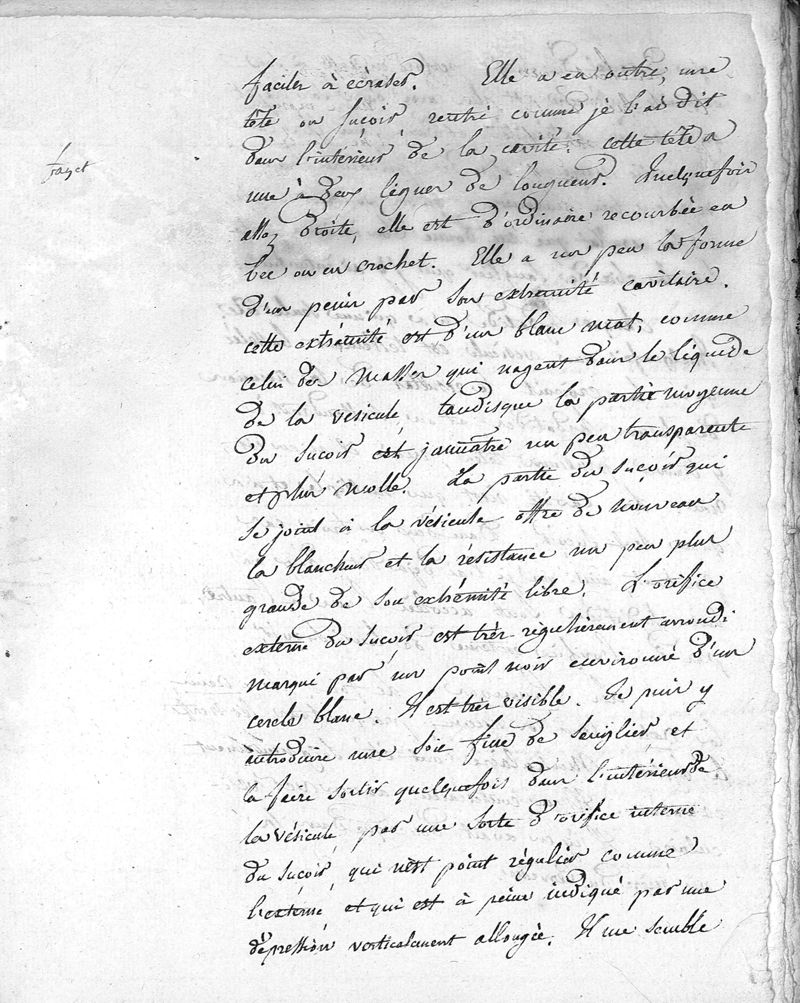 faciles à écraser. Elle a en outre, une
tête ou suçoir rentré comme je l'ai dit
dans l'intérieur de la cavité. cette tête a
une à deux lignes de longueur. Quelquefois
assez droite, elle est d'ordinaire recourbée en
bec ou en crochet. Elle a un peu la forme
d'un penis par son extremité cavitaire.
cette extrémité est d'un blanc mat, comme
celui des masses qui nagent dans le liquide
de la vesicule tandisque la partie moyenne
du suçoir est jaunatre un peu transparente
et plus molle. La partie du suçoir qui
se joint à la vésicule offre de nouveau
la blancheur et la résistance un peu plus
grande de son extrémité libre. L'orifice
externe du suçoir est très régulièrement arrondi
marqué par un point noir environné d'un
cercle blanc. Il est très visible. Je puis y
introduire une soie fine de sanglier, et
la faire sortir quelquefois dans l'intérieur de
la vésicule, par une sorte d'orifice interne
du suçoir, qui n'est point régulier comme
l'externe et qui est à peine indiqué par une
dépression verticalement allongée. Il me semble